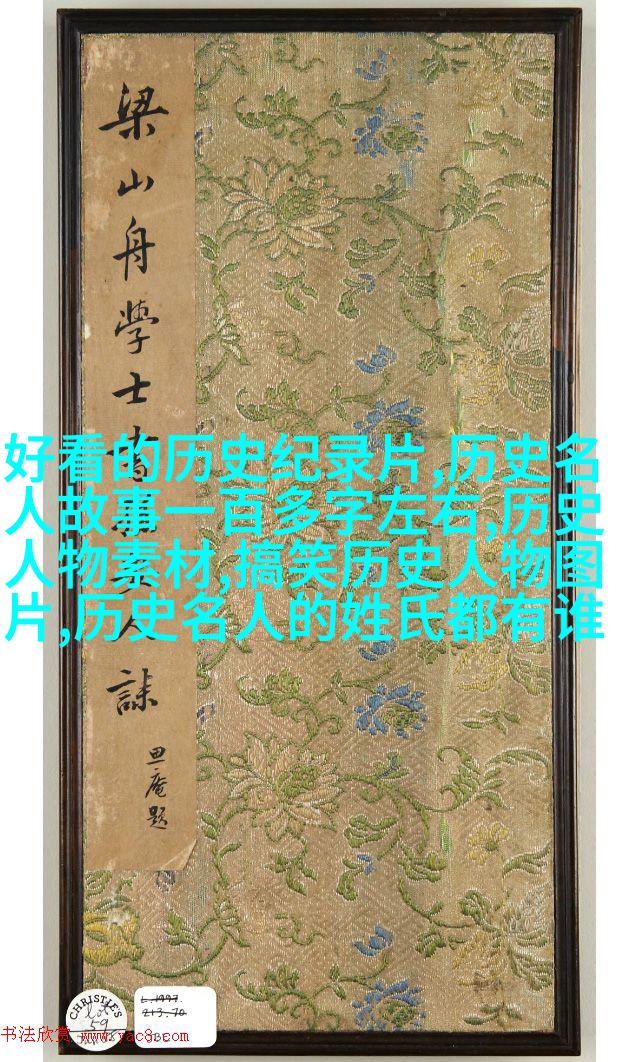 梁山舟學士書人誄
庵題
好看的历史纪录片,历史名
人故事一百多字左右,历史
人物素材,搞笑历史人物图
片,历史名人的姓氏都有谁
CHRISTIE'S
lot
59
L.1997.
213.70
书法欣赏 www.yac8.com